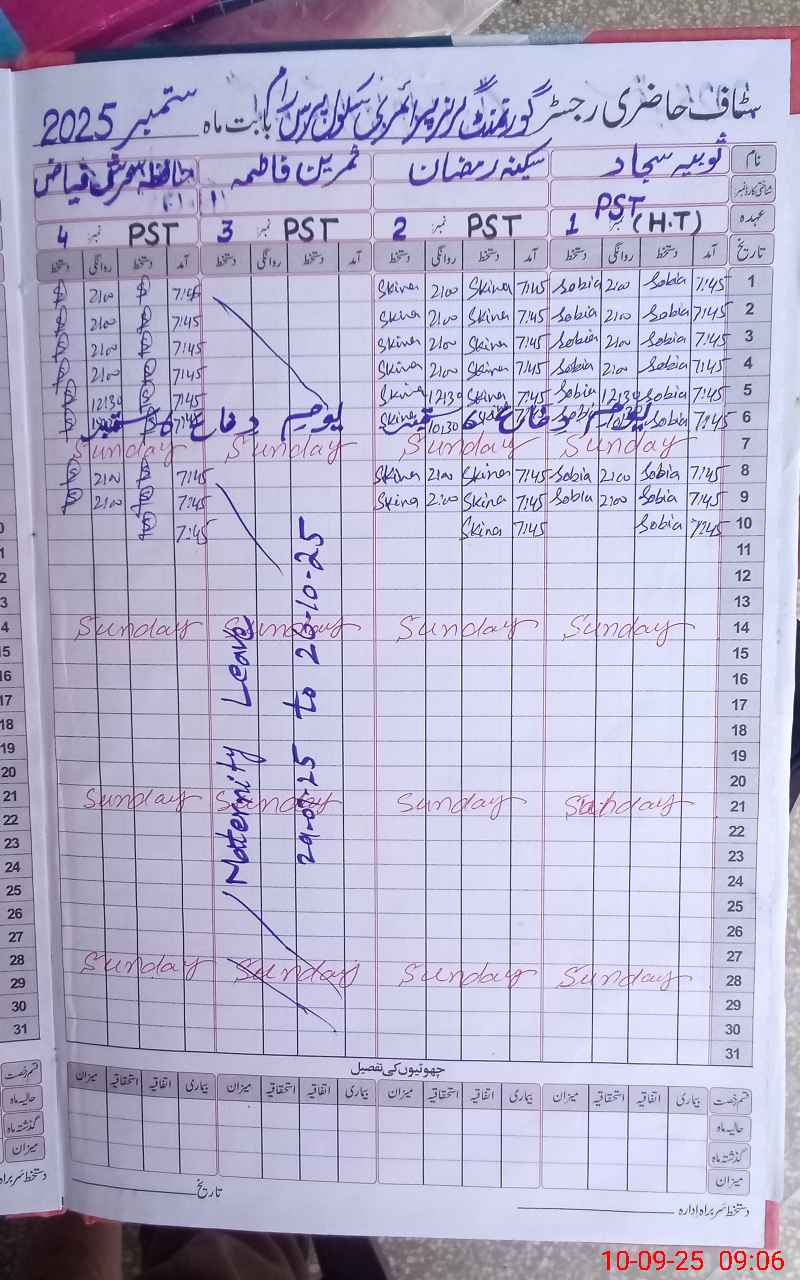 سٹاف حاضری رجسٹر گورنمنٹ گرلز پرائمری سکول پیرس رام بابت ماہ ستمبر 2025
نام ثوبیہ سجاد سکینہ رمضان ثمرین فاطمہ حافظہ سحرش فیاض
شناختی کارڈ نمبر
عہدہ PST (H.T) نمبر 1 PST نمبر 2 PST نمبر 3 PST نمبر 4
تاریخ آمد دستخط روانگی دستخط آمد دستخط روانگی دستخط آمد دستخط روانگی دستخط آمد دستخط روانگی دستخط
1 7:45 Sobia 2:00 Sobia 7:45 Skina 2:00 Skina 7:45 2:00
2 7:45 Sobia 2:00 Sobia 7:45 Skina 2:00 Skina 7:45 2:00
3 7:45 Sobia 2:00 Sobia 7:45 Skina 2:00 Skina 7:45 2:00
4 7:45 Sobia 2:00 Sobia 7:45 Skina 2:00 Skina 7:45 2:00
5 7:45 Sobia 12:30 Sobia 7:45 Skina 12:30 Skina 7:45 12:30
6 7:45 Sobia 10:30 Sobia یوم دفاع 6 ستمبر 10:30 Skina یوم دفاع 6 ستمبر 7:45
7 Sunday Sunday Sunday Sunday
8 7:45 Sobia 2:00 Sobia 7:45 Skina 2:00 Skina 7:45 2:00
9 7:45 Sobia 2:00 Sobia 7:45 Skina 2:00 Skina 7:45 2:00
10 7:45 Sobia 7:45 Skina 7:45
11
12
13
14 Sunday Sunday Sunday Sunday
15
16
17
18
19
20
21 Sunday Sunday Sunday Sunday
22
23
24
25
26
27
28 Sunday Sunday Sunday Sunday
29
30
31
Maternity Leave
چھوٹیوں کی تفصیل
قسم رخصت بیماری اتفاقیہ استحقاقیہ میزان بیماری اتفاقیہ استحقاقیہ میزان بیماری اتفاقیہ استحقاقیہ میزان بیماری اتفاقیہ استحقاقیہ میزان
حالیہ ماہ
گذشتہ ماہ
میزان
دستخط سربراہ ادارہ
تاریخ
قسم رخصت
حالیہ ماہ
گذشتہ ماہ
میزان
دستخط سربراہ
10-09-25 09:06